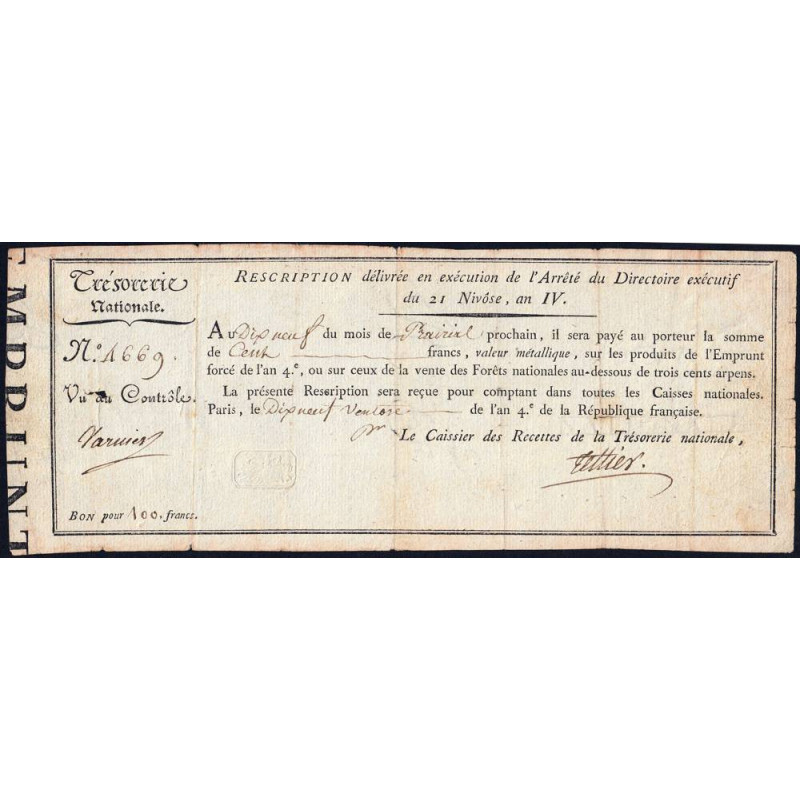 EMPRUNT
Trésorerie
Nationale.
N.º 4669.
Vu au Contrôle.
Bon pour 100. francs.
Rescription délivrée en exécution de l'Arrêté du Directoire exécutif
du 21 Nivôse, an IV.
Au Dix neuf du mois de Prairial prochain, il sera payé au porteur la somme
de Cent francs, valeur métallique, sur les produits de l'Emprunt
forcé de l'an 4.e, ou sur ceux de la vente des Forêts nationales au-dessous de trois cents arpens.
La présente Rescription sera reçue pour comptant dans toutes les Caisses nationales.
Paris, le Dix neuf Ventose de l'an 4.e de la République française.
pr Le Caissier des Recettes de la Trésorerie nationale,
tellier.